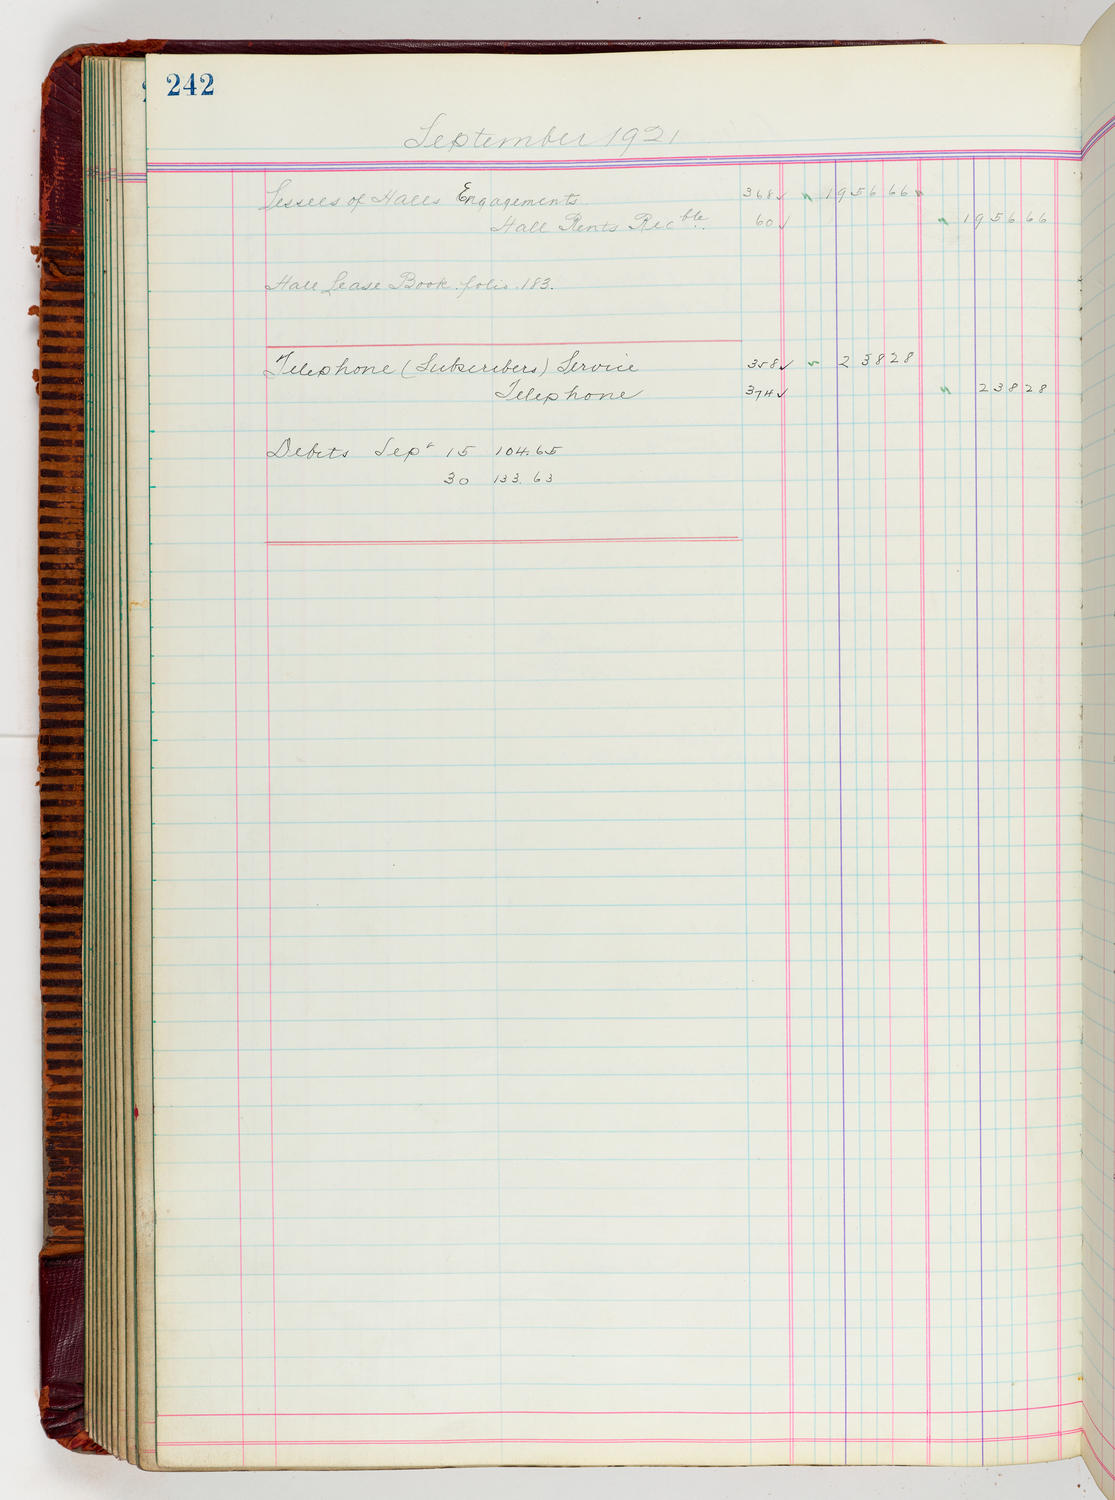 242
September 1921
Lessees of Halls Engagements 368✓ 1956666
Hall Rents Rec^ble. 60✓ 1956666
Hall Lease Book. folio. 183.
Telephone (Subscribers) Service 358✓ 23828
Telephone 374✓ 23828
Debits Sep^t 15 104.65
30 133.63